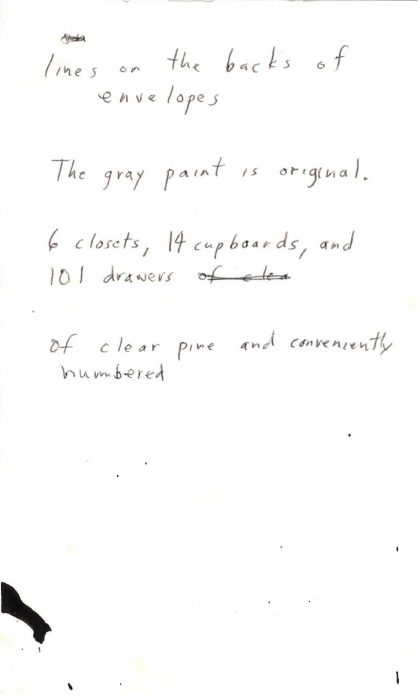 lines on the backs of
envelopes
The gray paint is original.
6 closets, 14 cupboards, and
101 drawers of clea
of clear pine and conveniently
numbered